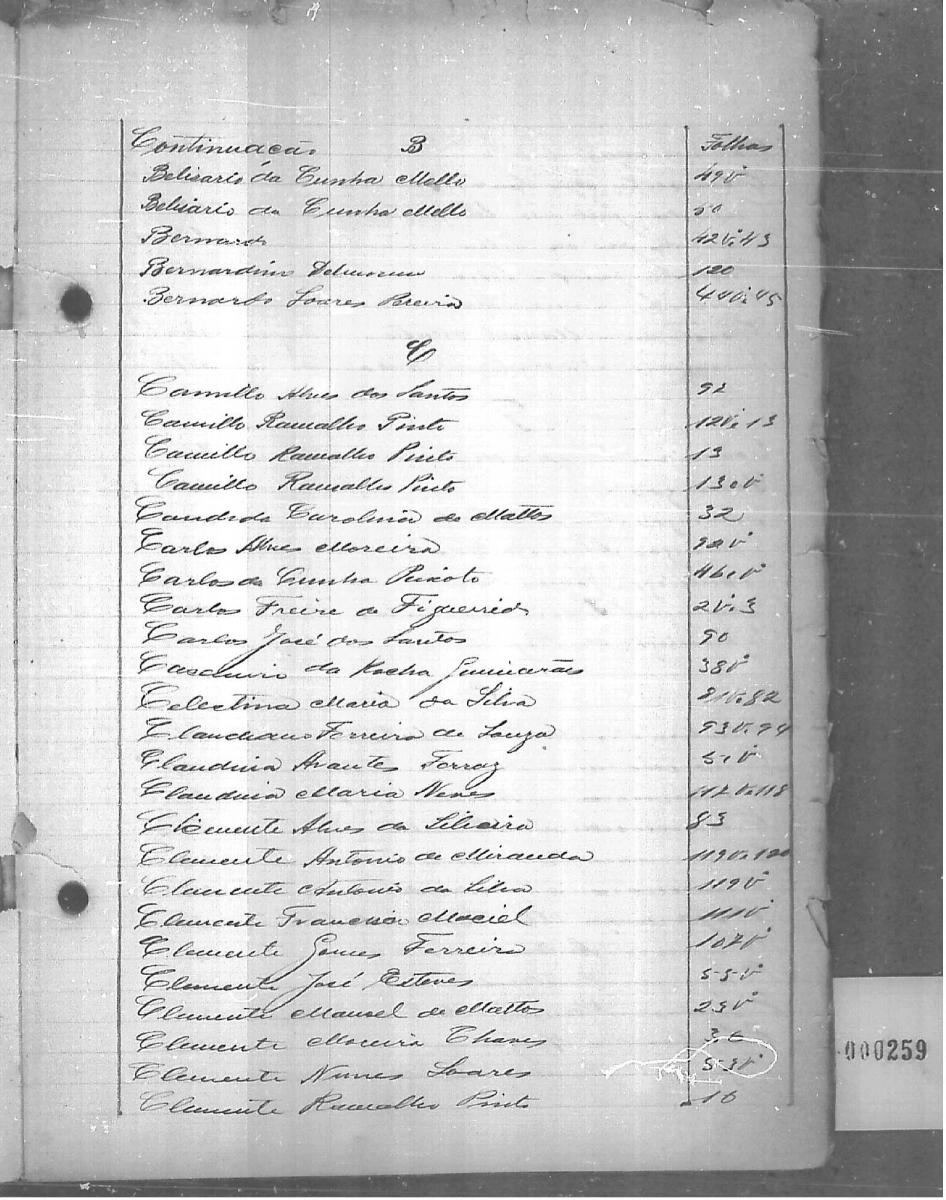 Continuação B Folhas
Belisario da Cunha Mello 49v
Belisario da Cunha Mello 50
Bernard 42v.43
Bernardino 120
Bernardo Soares Pereira 44v.45
C
Camillo Alves dos Santos 92
Camillo Ramalho Pinto 12v.13
Camillo Ramalho Pinto 13
Camillo Ramalho Pinto 13.v
Candida Carolina de Mattos 32
Carlos Alves Moreira
Carlos da Cunha Peixoto 46.v
Carlos Freire de Figueiredo 2v.3
Carlos José dos Santos 90
Casemiro da Rocha Guimarães 38v
Celestina Maria da Silva 81v.82
Claudiano Ferreira de Souza 93v.94
Claudina Arantes Ferraz 51v
Claudina Maria Neves
Clemente Alves da Silveira 83
Clemente Antonio de Miranda 119v.120
Clemente Antonio da Silva 119v
Clemente Francisco Maciel 111v
Clemente Gomes Ferreira 107v
Clemente José Esteves 55v
Clemente Manoel de Mattos 23v
Clemente Moreira Chaves
Clemente Nunes Soares 53v
Clemente Ramalho Pinto
000259